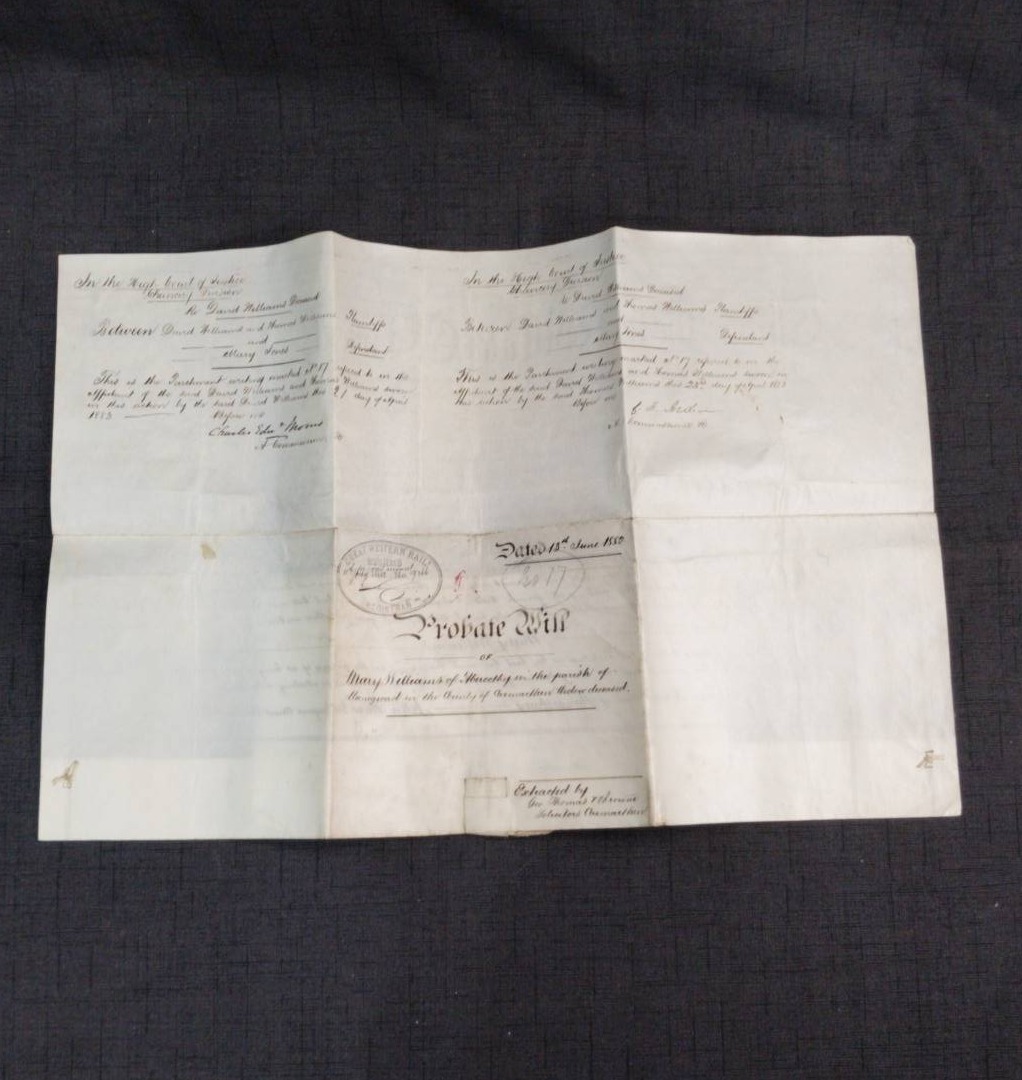 In the High Court of Justice
Chancery Division
Re David Williams Deceased
Between David Williams and Thomas Williams Plaintiffs
and
Mary Jones Defendant
This is the Parchment writing marked No 17 referred to in the
affidavit of the said David Williams and Thomas Williams sworn
in this action by the said David Williams this 21 day of April
1883 Before me
Charles Edwd Morris
A Commissioner
In the High Court of Justice
Chancery Division
Re David Williams Deceased
Between David Williams and Thomas Williams Plaintiffs
and
Mary Jones Defendant
This is the Parchment writing marked No 17 referred to in the
affidavit of the said David Williams and Thomas Williams sworn in
this action by the said Thomas Williams this 25th day of April 1883
Before me
A Commissioner
GREAT WESTERN RAIL
REGISTRAR
Dated 13th June 1882
No 17
Probate Will
OF
Mary Williams of in the parish of
in the County of Carmarthen Widow deceased.
Extracted by
Geo Thomas & Browne
Solicitors Carmarthen